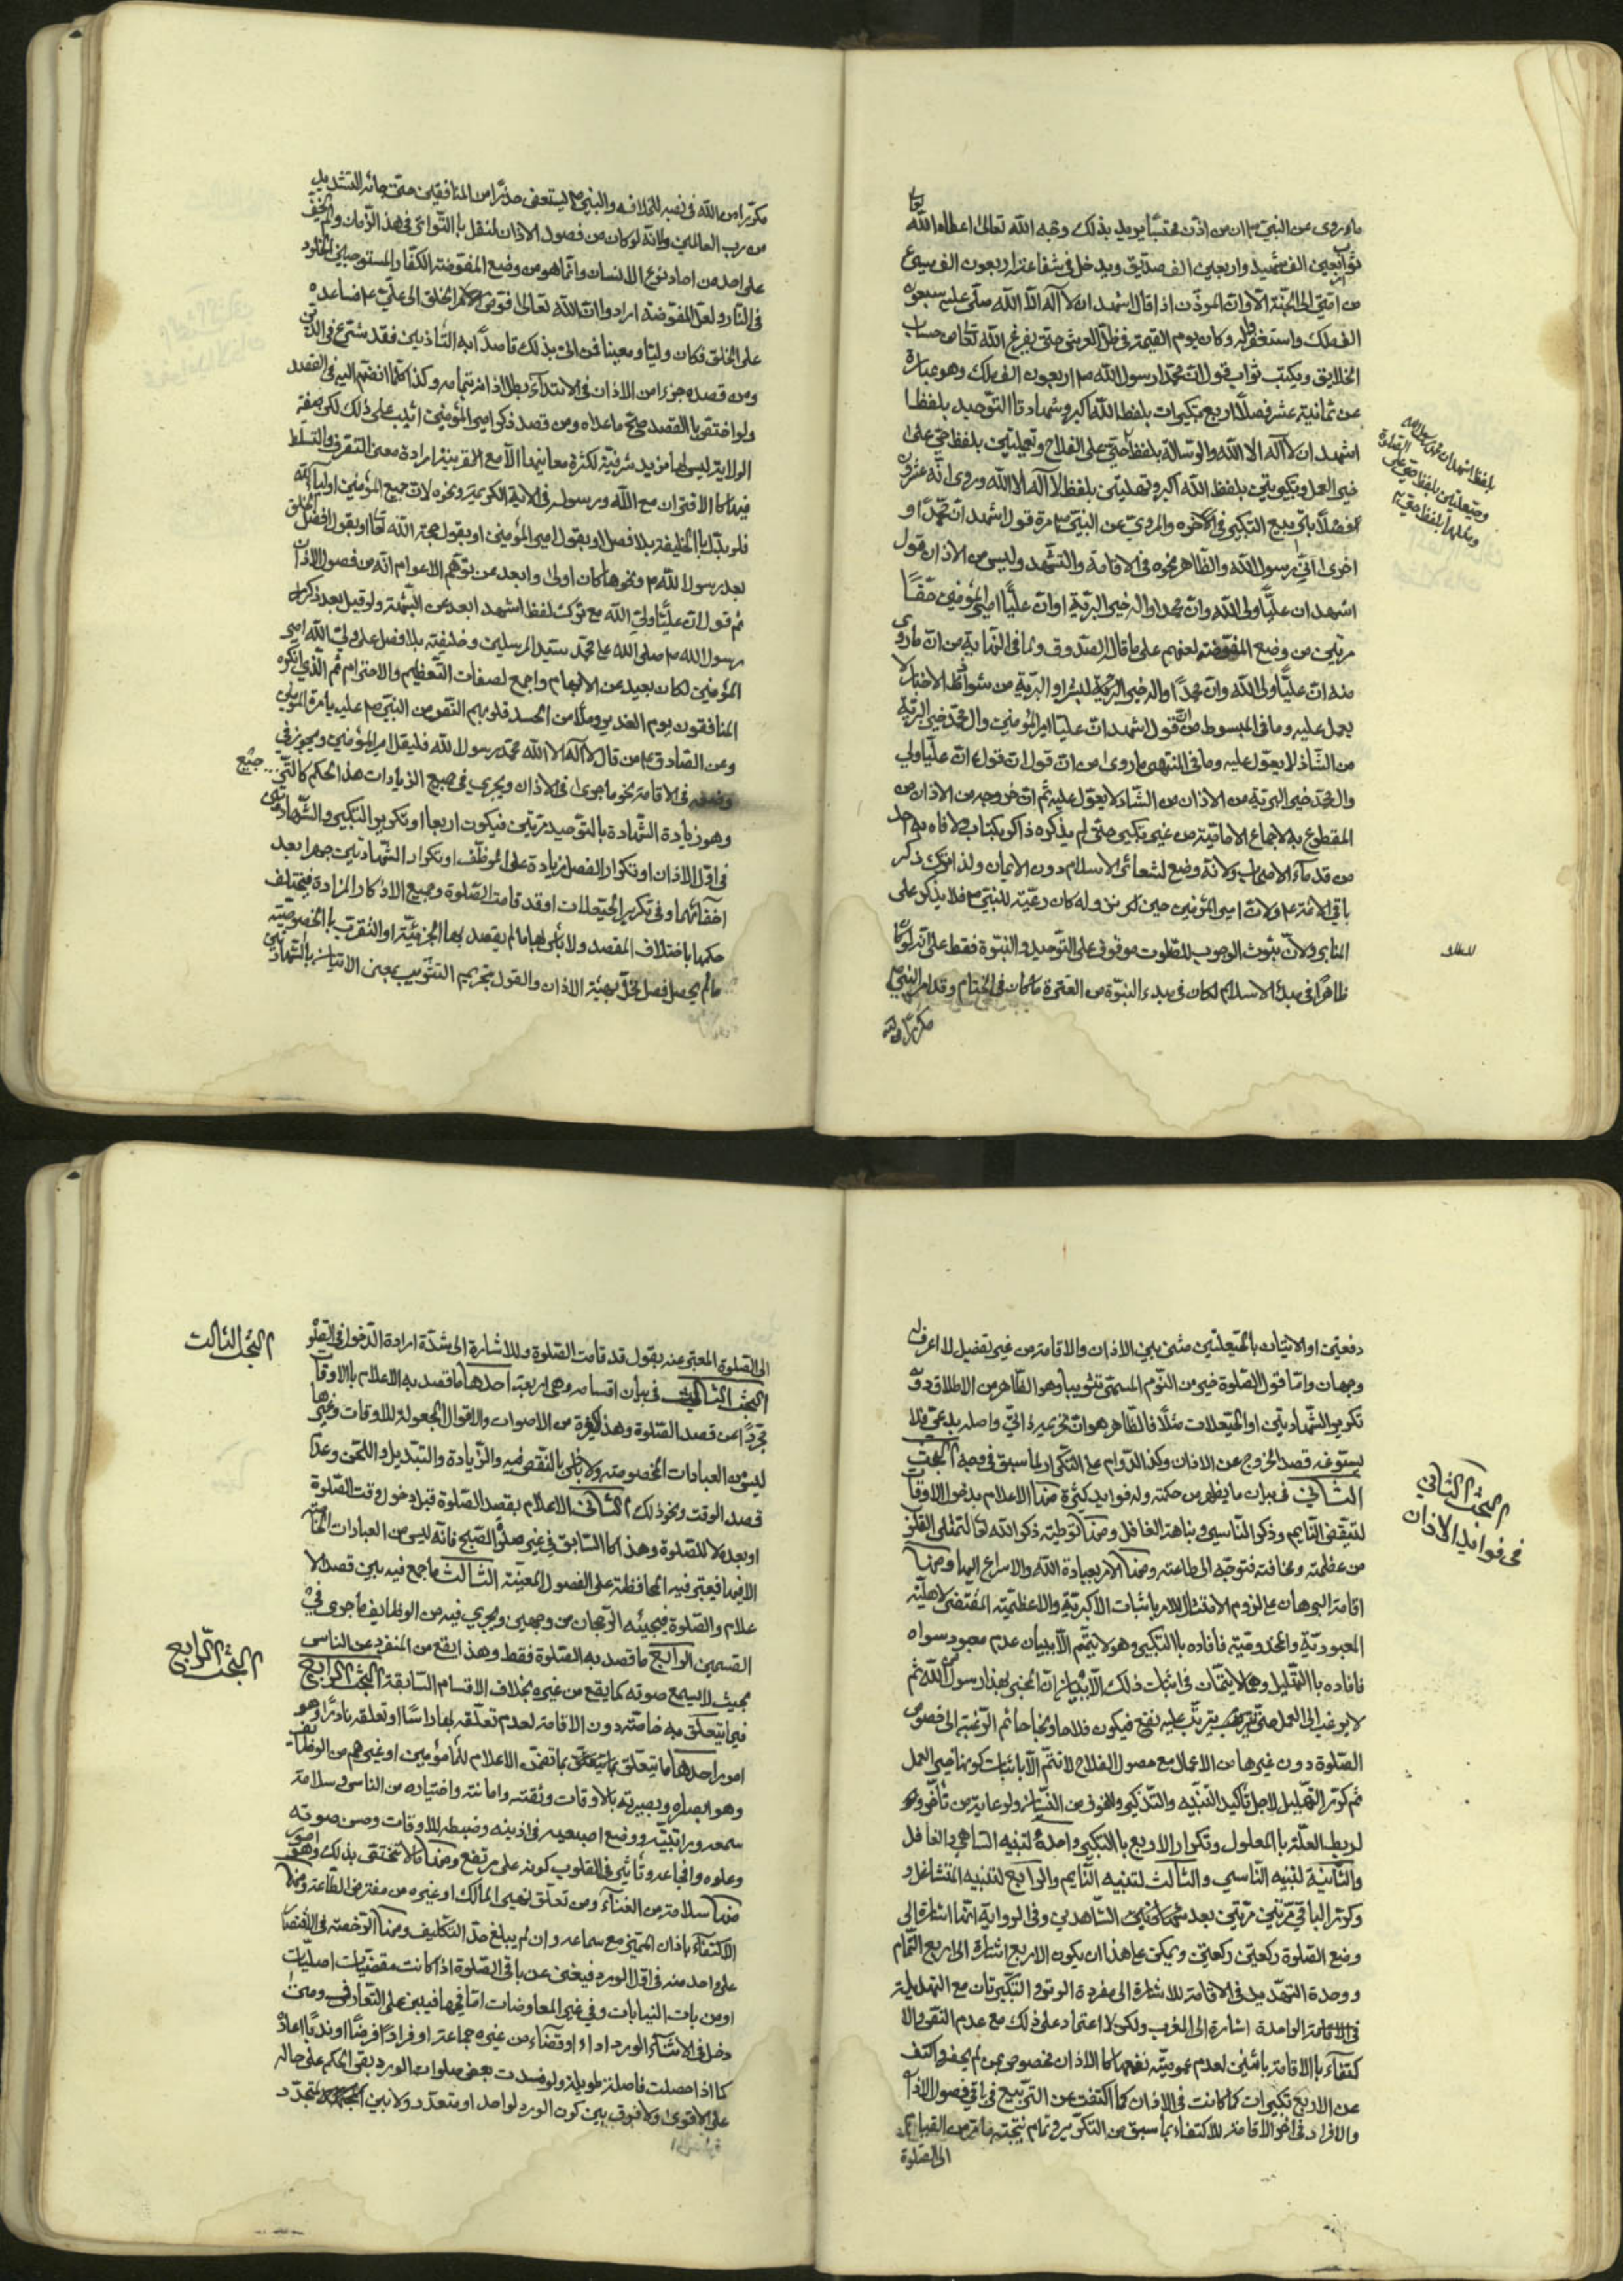 ما روي عن النبي ص ان من اذن محتسبا يريد بذلك وجه الله تعالى اعطاه الله
ثواب اربعين الف شهيد واربعين الف صديق ويدخل في شفاعته اربعون الف مسيئ
من امتي الى الجنة الا وان المؤذن اذا قال اشهد ان لا اله الا الله صلى عليه سبعون
الف ملك واستغفروا له وكان يوم القيمة في ظل العرش حتى يفرغ الله تعالى من حساب
الخلايق ويكتب ثواب قول ان محمدا رسول الله ص اربعون الف ملك وهو عبارة
عن ثمانية عشر فصلا اربع تكبيرات بلفظ الله اكبر وشهادتا التوحيد بلفظ
اشهد ان لا اله الا الله والرسالة بلفظ حي على الفلاح وحيعلتين بلفظ حي على
خير العمل وتكبيرتين بلفظ الله اكبر وتهليلتين بلفظ لا اله الا الله وروي انه عشرون
فصلا بتربيع التكبير في الآخره والمروي عن النبي ص مرة قول اشهد ان محمدا و
اخرى اني رسول الله والظاهر نحوه في الاقامة والتشهد وليس من الاذان قول
اشهد ان عليا ولي الله وان محمدا واله خير البرية او ان عليا امير المؤمنين حقا
مرتين من وضع المفوضة لعنهم على ما قال الصدوق ولما في النهاية من ان ما روي
منه ان عليا ولي الله وان محمدا واله خير البشر او البرية من شواذ الاخبار لا
يعمل عليه وما في المبسوط من ان قول اشهد ان عليا امير المؤمنين وال محمد خير البرية
من الشاذ لا يعول عليه وما في المنتهى ما روي من ان قول ان عليا ولي
وال محمد خير البرية من الاذان من الشاذ لا يعول عليه ثم ان خروجه من الاذان من
المقطوع به لاجماع الامامية من غير نكير حتى لم يذكره ذاكر بكتاب ولا فاه به احد
من قدماء الاصحاب ولانه وضع لشعائر الاسلام دون الايمان ولذا ترك ذكر
باقي الائمة ع ولان امير المؤمنين حين نزوله كان رعية للنبي ص فلا يذكر على
المنابر ولان ثبوت الوجوب للصلوة موقوف على التوحيد والنبوة فقط على انه لو كان
ظاهرا في مبدء الاسلام لكان في مبدء النبوة من الفترة ما كان في الختام وقد امر النبي ص
مكررا من الله
بلفظ اشهد ان محمدا رسول الله
وحيعلتين بلفظ حي على الصلوة
مكررا من الله في نصبه للخلافه والنبي ص يستعفي حذرا من المنافقين حتى جائه التشديد
من رب العالمين ولانه لو كان من فصول الاذان لنقل بالتواتر في هذا الزمان ولم يخف
على احد من احاد نوع الانسان وانما هو من وضع المفوضة الكفار المستوجبين الخلود
في النار ولعل المفوضة ارادوا ان الله تعالى فوض امر الخلق الى علي ع فساعده
على الخلق فكان وليا ومعينا فمن اتى بذلك قاصدا به التاذين فقد شرع في الدين
ومن قصده جزء من الاذان في الابتداء بطل اذانه بتمامه وكذا كلما انضم اليه في القصد
ولو اختص بالقصد صح ما عداه ومن قصد ذكر امير المؤمنين اثيب على ذلك لكن صفة
الولاية ليس لها مزيد شرفية لكثرة معانيها الا مع القرينة ارادة معنى التصرف والتسلط
فيها كالاقتران مع الله ورسوله في الاية الكريمة ونحوه لان جميع المؤمنين اولياء الله
فلو بدل بالخليفة بلا فصل او بقول امير المؤمنين او بقول حجة الله تعالى او بقول افضل الخلق
بعد رسول الله ص ونحوها كان اولى وابعد عن توهم الاعوام انه من فصول الاذان
ثم قول ان عليا ولي الله مع ترك لفظ اشهد ابعد عن الشبهة ولو قيل بعد ذكر
رسول الله ص صلى الله على محمد سيد المرسلين وخليفته بلا فصل علي ولي الله امير
المؤمنين لكان بعيد عن الابهام واجمع لصفات التعظيم والاحترام ثم الذي انكره
المنافقون يوم الغدير وملأ من الحسد قلوبهم النص من النبي ص عليه بامرة المؤمنين
وعن الصادق ع من قال لا اله الا الله محمد رسول الله فليقل امير المؤمنين ويجري في
في الاقامة نحو ما جرى في الاذان ويجري في جميع الزيادات هذا الحكم كالتي
وهو زيادة الشهادة بالتوحيد مرتين فيكون اربعا او تكرير التكبير والشهادتين
في اول الاذان او تكرار الفصل زيادة على الموظف او تكرار الشهادتين جهرا بعد
اخفائهما وفي تكرير الحيعلات او قد قامت الصلوة وجميع الاذكار المزادة فيختلف
حكمها باختلاف المقصد ولا بأس بها ما لم يقصد بها الجزئية او التقرب بالخصوصية
ما لم يحصل فصل مخل بهيئة الاذان والقول بتحريم التثويب بمعنى الاتيان بالشهادتين
دفعتين او الاتيان بالحيعلتين مثنى بين الاذان والاقامة من غير تفصيل لا اعرف له
وجها واما قول الصلوة خير من النوم المسمى تثويبا وهو الظاهر من الاطلاق دون
تكرير الشهادتين او الحيعلات مثلا فالظاهر هو ان تحريمه ذاتي واصله بدعي فلا
يسوغه قصد الخروج عن الاذان وكذا الدوام على التكرار لما سبق في وجه البحث
الثاني في بيان ما يظهر من حكمته وله فوايد كثيرة منها الاعلام بدخول الاوقات
لتيقض النايم وذكر الناسي ونباهة الغافل ومنها توطية ذكر الله تعالى لتمتلي القلوب
من عظمته ومخافته فتوجه الى طاعته ومنها الامر بعبادة الله والاسراع اليها ومنها
اقامة البرهان على لزوم الامتثال للامر باثبات الاكبرية والاعظمية المقتضي لاهلية
المعبودية والمخدومية فافاده بالتكبير وهو لا يتم الا ببيان عدم معبود سواه
فافاده بالتهليل وهما لا يتمان في اثبات ذلك الا ببيان ان المخبر بهذا رسول الله ثم
لا يرغب الى العمل حتى يترتب عليه نفع فيكون فلاحا ونجاحا ثم الرغبة الى خصوص
الصلوة دون غيرها من الاعمال مع حصول الفلاح لا تتم الا باثبات كونها خير العمل
ثم كرر التهليل لاجل تأكيد التنبيه والتذكير والخوف من النسيان ولرعاية من تأخر و
لربط العلة بالمعلول وتكرار الاربع بالتكبير واحدة لتنبيه الساهي والغافل
والثانية لتنبيه الناسي والثالث لتنبيه النايم والرابع لتنبيه المتشاغل و
وكرر الباقي مرتين مرتين بعد شهادتي الشاهدين وفي الرواية انها اشارة الى
وضع الصلوة ركعتين ركعتين ويمكن على هذا ان يكون الاربع اشارة الى اربع التمام
ووحدة التهليل في الاقامة للاشارة الى مفردة الوتر والتكبيرتان مع التهليلة
في الاقامة الواحدة اشارة الى المغرب ولكن لا اعتماد على ذلك مع عدم النص والا
كتفاء بالاقامة باثنين لعدم عموميته نفعها كالاذان لخصوص بمن لم يحضر واكتف
عن الاربع تكبيرات كما كانت في الاذان كما اكتفت عن التربيع في باقي فصول الاذان
والافراد في اخر الاقامة للاكتفاء بما سبق من التكرير وتمام نتيجته من القيام
الى الصلوة
البحث الثاني
في فوائد الاذان
الى الصلوة المعبر عنه بقول قد قامت الصلوة وللاشارة الى شدة ارادة الدخول في الصلوة
البحث الثالث في بيان اقسامه وهي اربعة احدها ما قصد به الاعلام بالاوقات
مجردا عن قصد الصلوة وهذا كغيره من الاصوات والاقوال المجعولة للاوقات وغيرها
ليس من العبادات المخصوصة ولا بأس بالنقص فيه والزيادة والتبديل واللحن وعدم
قصد الوقت ونحو ذلك الثاني الاعلام بقصد الصلوة قبل دخول وقت الصلوة
او بعده لا للصلوة وهذا كالسابق في غير صلوة الصبح فانه ليس من العبادات الخاصة
الا فيها فيعتبر فيه المحافظة على الفصول المعينة الثالث ما جمع فيه بين قصد الا
علام والصلوة فيجيئه الرجحان من وجهين ويجري فيه من الوظايف ما جرى في
القسمين الرابع ما قصد به الصلوة فقط وهذا يقع من المنفرد عن الناس
بحيث لا يسمع صوته كما يقع من غيره بخلاف الاقسام السابقة البحث الرابع
فيما يتعلق به خاصة دون الاقامة لعدم تعلقه بها راسا او تعلقه نادرا وهو
امور احدها ما يتعلق بما تضمن الاعلام للمأمومين او غيرهم من الوظايف
وهو ابصاره وبصيرته بالاوقات وثقته وامانته واختياره من الناس وسلامة
سمعه ومراتبه ووضع اصبعيه في اذنيه وضبطه للاوقات وحسن صوته
وعلوه وافجاعه وتأثيره في القلوب كونه على مرتفع ومنها ما لا تختص بذلك وهي امور
منها سلامته من الغناء ومن تعلق نهي المالك او غيره من مفترض الطاعة ومنها
الاكتفاء باذان المميز مع سماعه وان لم يبلغ حد التكليف ومنها الرخصة في الاقتصار
على واحد منه في اول الورد فيغني عن باقي الصلوة اذا كانت مقضيات اصليات
او من باب النيابات وفي غير المعاوضات اما فيها فيبنى على التعارف ومتى
دخل في الاثناء الورد اداء او قضاء من غيره جماعة او فرادا فرضا او ندبا اعاده
كما اذا حصلت فاصلة طويلة ولو فسدت بعض صلوات الورد بقي الحكم على حاله
على الاقوى ولا فرق بين كون الورد لواحد او متعدد ولا بين المتجدد
البحث الثالث
البحث الرابع